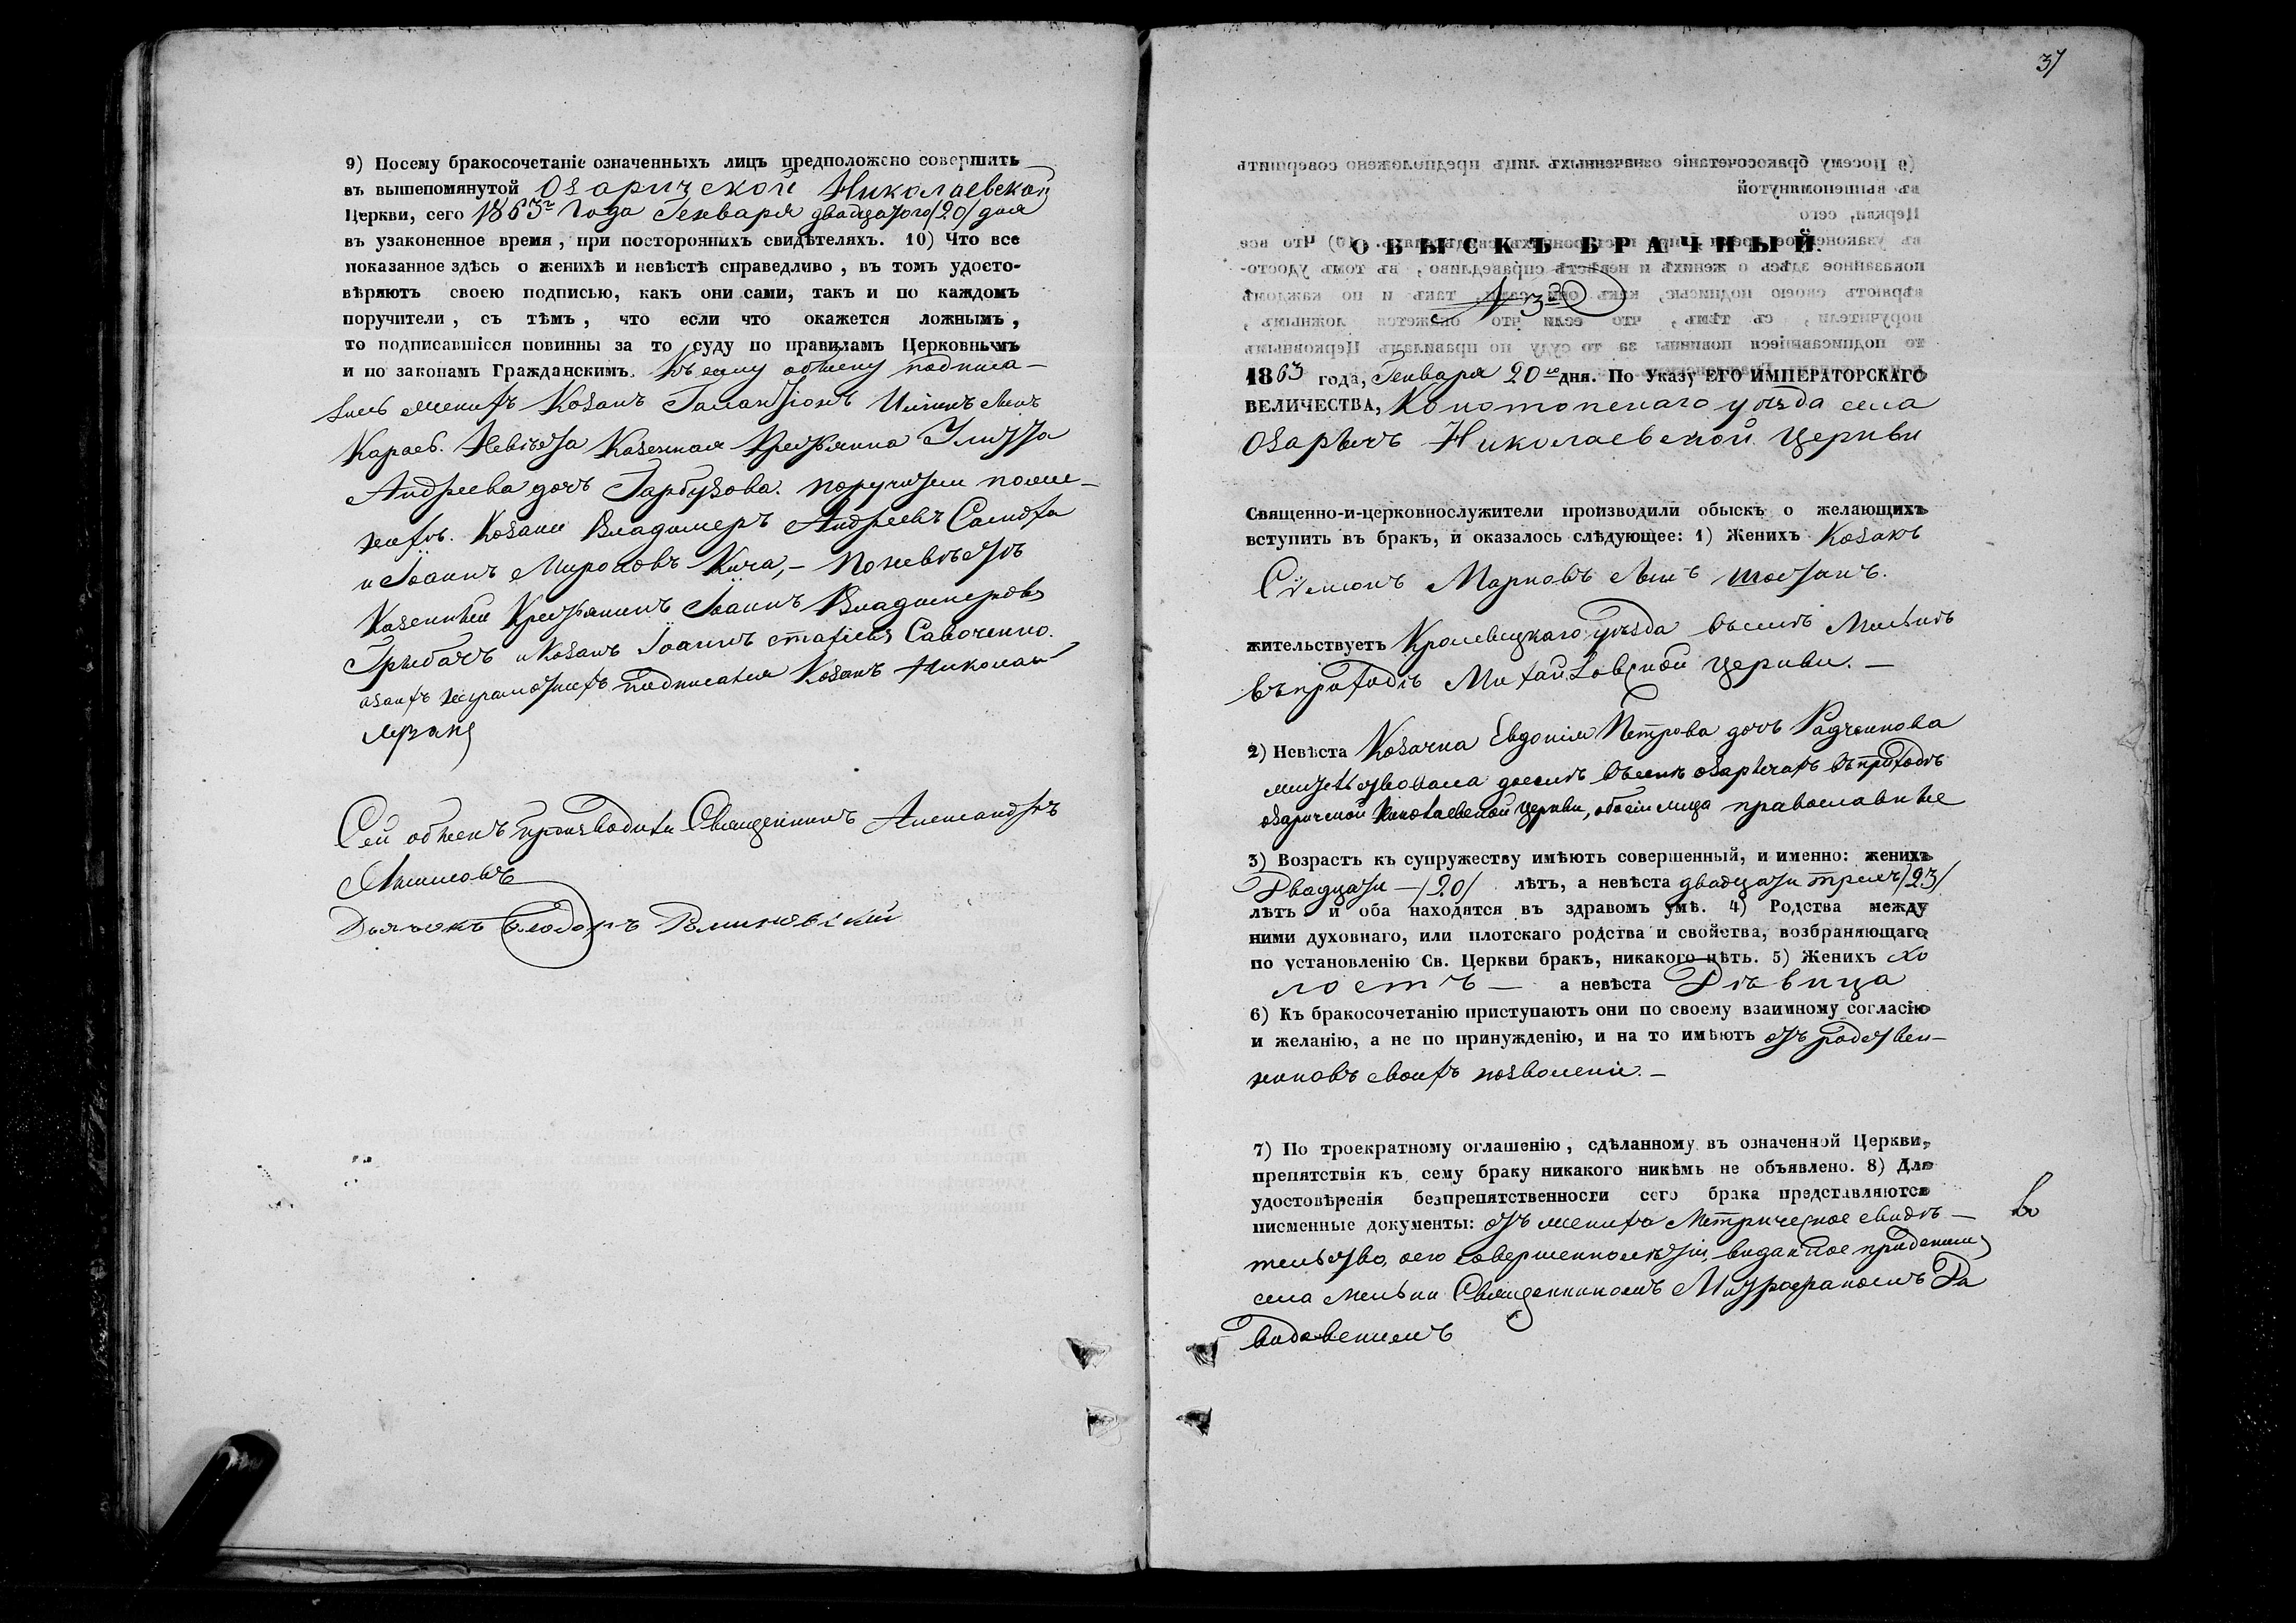 9) Посему бракосочетаніе означенныхъ лицъ предположено совершить
въ вышепомянутой Озаричской Николаевской
Церкви, сего 1863 года Генваря двадцатого /20/ дня
въ узаконенное время, при постороннихъ свидѣтеляхъ. 10) Что все
показанное здѣсь о женихѣ и невѣстѣ справедливо, въ томъ удосто-
вѣряютъ своею подписью, какъ они сами, такъ и по каждомъ
поручители, съ тѣмъ, что если что окажется ложнымъ,
то подписавшіеся повинны за то суду по правиламъ Церковнымъ
и по законамъ Гражданскимъ. Къ сему обыску подписа-
лись женихъ Козакъ Галактіонъ
Караев. Невѣста Казенная Крестьянка
Андреева дочь Гарбузова. поручители по же-
нихѣ. Козаки Владимеръ Андреевъ Самоха
и Іоаннъ Мироновъ Кича, – По невѣстѣ
Казенный Крестьянинъ Іоаннъ Владимеровъ
Грибачъ и Козакъ Іоаннъ Савоченко.
неграмотныхъ подписался Козакъ Николай
Сей обыскъ производили Священникъ Александръ
Дьячокъ Ѳеодоръ
37
ОБЫСКЪ БРАЧНЫЙ.
№ 3
1863 года, Генваря 20го дня. По Указу ЕГО ИМПЕРАТОРСКАГО
ВЕЛИЧЕСТВА, Конотопскаго уѣзда села
Озаричъ Николаевской Церкви
Священно-и-церковнослужители производили обыскъ о желающихъ
вступить въ бракъ, и оказалось слѣдующее: 1) Женихъ Козакъ
Сѵмеонъ Марковъ сынъ Шостакъ.
жительствуетъ Кролевецкаго уѣзда въ селѣ Мельнѣ
въ приходѣ Михайловской Церкви. –
2) Невѣста Козачка Евдокія Петрова дочь Радченкова
жительствовала доселѣ въ селѣ Озаричахъ въ приходѣ
Озаричской Николаевской Церкви, обоси лица православные
3) Возрастъ къ супружеству имѣютъ совершенный, и именно: женихъ
Двадцати – /20/ лѣтъ, а невѣста двадцати трехъ /23/
лѣтъ и оба находятся въ здравомъ умѣ. 4) Родства между
ними духовнаго, или плотскаго родства и свойства, возбраняющаго
по установленію Св. Церкви бракъ, никакого нѣтъ. 5) Женихъ хо
лостъ – а невѣста Дѣвица
6) Къ бракосочетанію приступаютъ они по своему взаимному согласію
и желанію, а не по принужденію, и на то имѣютъ отъ родствен-
никовъ своихъ позволеніе. –
7) По троекратному оглашенію, сдѣланному въ означенной Церкви,
препятствія къ сему браку никакого никѣмъ не объявлено. 8) Для
удостовѣренія безпрепятственности сего брака представляются
писменные документы: отъ жениха Метрическое свидѣ –
тельство, о его совершеннолѣтіи, виданное
села Мельни Священникомъ Митрофаномъ Да
видовскимъ